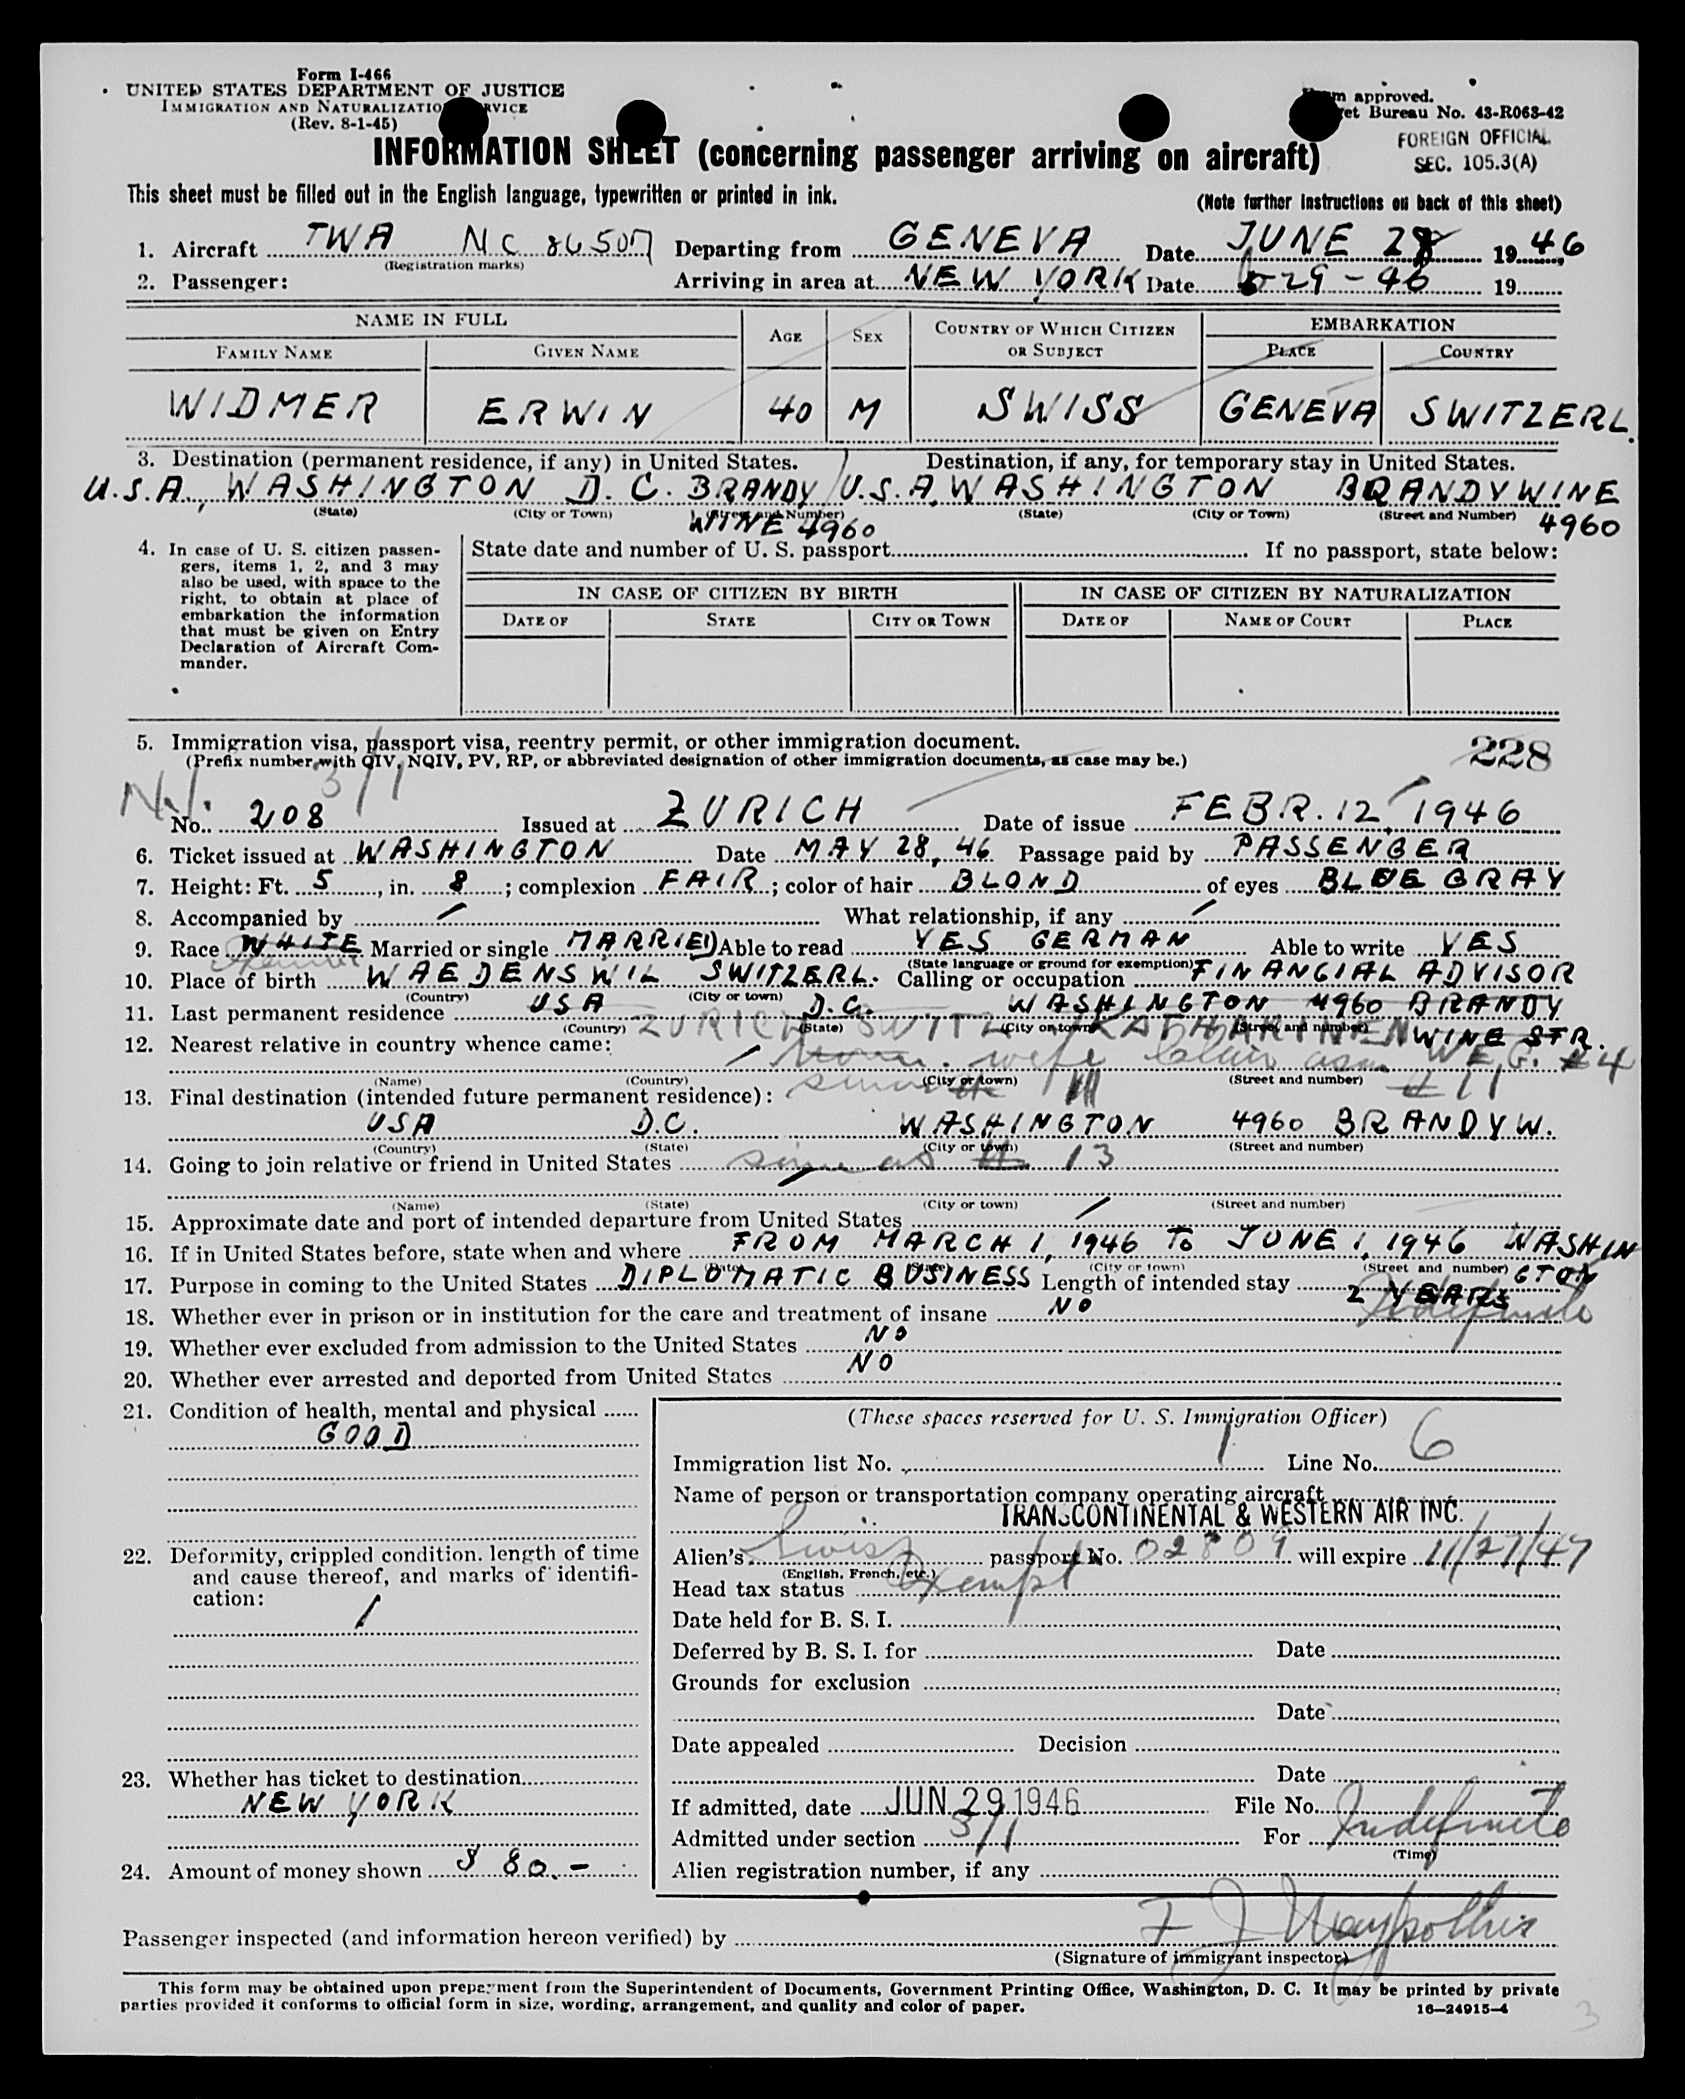 Form I-466
UNITED STATES DEPARTMENT OF JUSTICE
IMMIGRATION AND NATURALIZATION SERVICE
(Rev. 8-1-45)
Form approved.
Budget Bureau No. 43-R063-42
FOREIGN OFFICIAL
SEC. 105.3(A)
INFORMATION SHEET (concerning passenger arriving on aircraft)
This sheet must be filled out in the English language, typewritten or printed in ink.
(Note further instructions on back of this sheet)
1. Aircraft TWA NC 86507 Departing from GENEVA Date JUNE 28 1946
(Registration marks)
2. Passenger: Arriving in area at NEW YORK Date 6-29-46 19
NAME IN FULL AGE SEX COUNTRY OF WHICH CITIZEN OR SUBJECT EMBARKATION
FAMILY NAME GIVEN NAME PLACE COUNTRY
WIDMER ERWIN 40 M SWISS GENEVA SWITZERL.
3. Destination (permanent residence, if any) in United States. Destination, if any, for temporary stay in United States.
U.S.A., WASHINGTON D.C. BRANDY U.S.A. WASHINGTON BRANDYWINE
(State) (City or Town) (Street and Number) (State) (City or Town) (Street and Number)
WINE 4960 4960
4. In case of U. S. citizen passen-
gers, items 1, 2, and 3 may
also be used, with space to the
right, to obtain at place of
embarkation the information
that must be given on Entry
Declaration of Aircraft Com-
mander.
State date and number of U. S. passport If no passport, state below:
IN CASE OF CITIZEN BY BIRTH IN CASE OF CITIZEN BY NATURALIZATION
DATE OF STATE CITY OR TOWN DATE OF NAME OF COURT PLACE
5. Immigration visa, passport visa, reentry permit, or other immigration document.
(Prefix number with QIV, NQIV, PV, RP, or abbreviated designation of other immigration documents, as case may be.)
228
3/1
No. 208 Issued at ZURICH Date of issue FEBR. 12, 1946
6. Ticket issued at WASHINGTON Date MAY 28, 46 Passage paid by PASSENGER
7. Height: Ft. 5, in. 8; complexion FAIR; color of hair BLOND of eyes BLUE GRAY
8. Accompanied by / What relationship, if any /
9. Race WHITE Married or single MARRIED Able to read YES GERMAN Able to write YES
(State language or ground for exemption)
10. Place of birth WAEDENSWIL SWITZERL. Calling or occupation FINANCIAL ADVISOR
(Country) (City or town)
11. Last permanent residence USA D.C. WASHINGTON 4960 BRANDY
(Country) (State) (City or town) (Street and number)
ZURICH SWITZ WINE STR.
12. Nearest relative in country whence came: /
wife
(Name) (Country) (City or town) (Street and number)
13. Final destination (intended future permanent residence):
USA D.C. WASHINGTON 4960 BRANDYW.
(Country) (State) (City or town) (Street and number)
14. Going to join relative or friend in United States same as # 13
/
(Name) (State) (City or town) (Street and number)
15. Approximate date and port of intended departure from United States /
16. If in United States before, state when and where FROM MARCH 1, 1946 TO JUNE 1, 1946 WASHIN
(Date) (State) (City or town) (Street and number) GTON
17. Purpose in coming to the United States DIPLOMATIC BUSINESS Length of intended stay 2 YEARS
Indefinite
18. Whether ever in prison or in institution for the care and treatment of insane NO
19. Whether ever excluded from admission to the United States NO
20. Whether ever arrested and deported from United States NO
21. Condition of health, mental and physical
GOOD
22. Deformity, crippled condition. length of time
and cause thereof, and marks of identifi-
cation:
/
23. Whether has ticket to destination
NEW YORK
24. Amount of money shown $ 80.-
(These spaces reserved for U. S. Immigration Officer)
Immigration list No. 1 Line No. 6
Name of person or transportation company operating aircraft
TRANSCONTINENTAL & WESTERN AIR INC.
Alien's Swiss passport No. 02809 will expire 11/27/47
(English, French, etc.)
Head tax status Exempt
Date held for B. S. I.
Deferred by B. S. I. for Date
Grounds for exclusion
Date
Date appealed Decision
Date
If admitted, date JUN 29 1946 File No.
Admitted under section 3/1 For Indefinite
(Time)
Alien registration number, if any
Passenger inspected (and information hereon verified) by F J
(Signature of immigrant inspector)
This form may be obtained upon prepayment from the Superintendent of Documents, Government Printing Office, Washington, D. C. It may be printed by private
parties provided it conforms to official form in size, wording, arrangement, and quality and color of paper.
16—24915-4
3